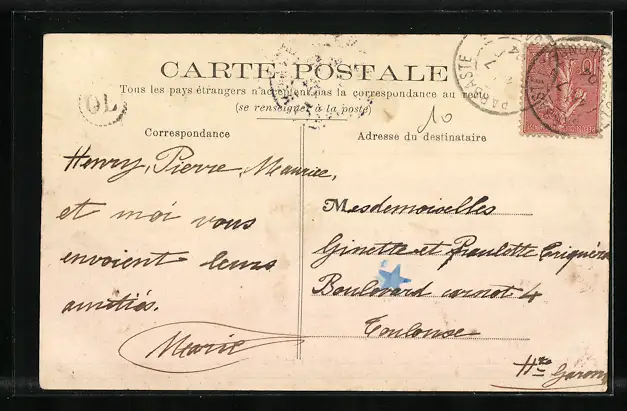 CARTE POSTALE
Tous les pays étrangers n'acceptent pas la correspondance au recto
(se renseigner à la poste)
OL
10
Correspondance
Adresse du destinataire
Henry, Pierre, Maurice,
et moi vous
envoient leurs
amitiés.
Marie
Mesdemoiselles
Ginette et Paulette
Boulevard carnot 4
Toulouse
Hte Garon